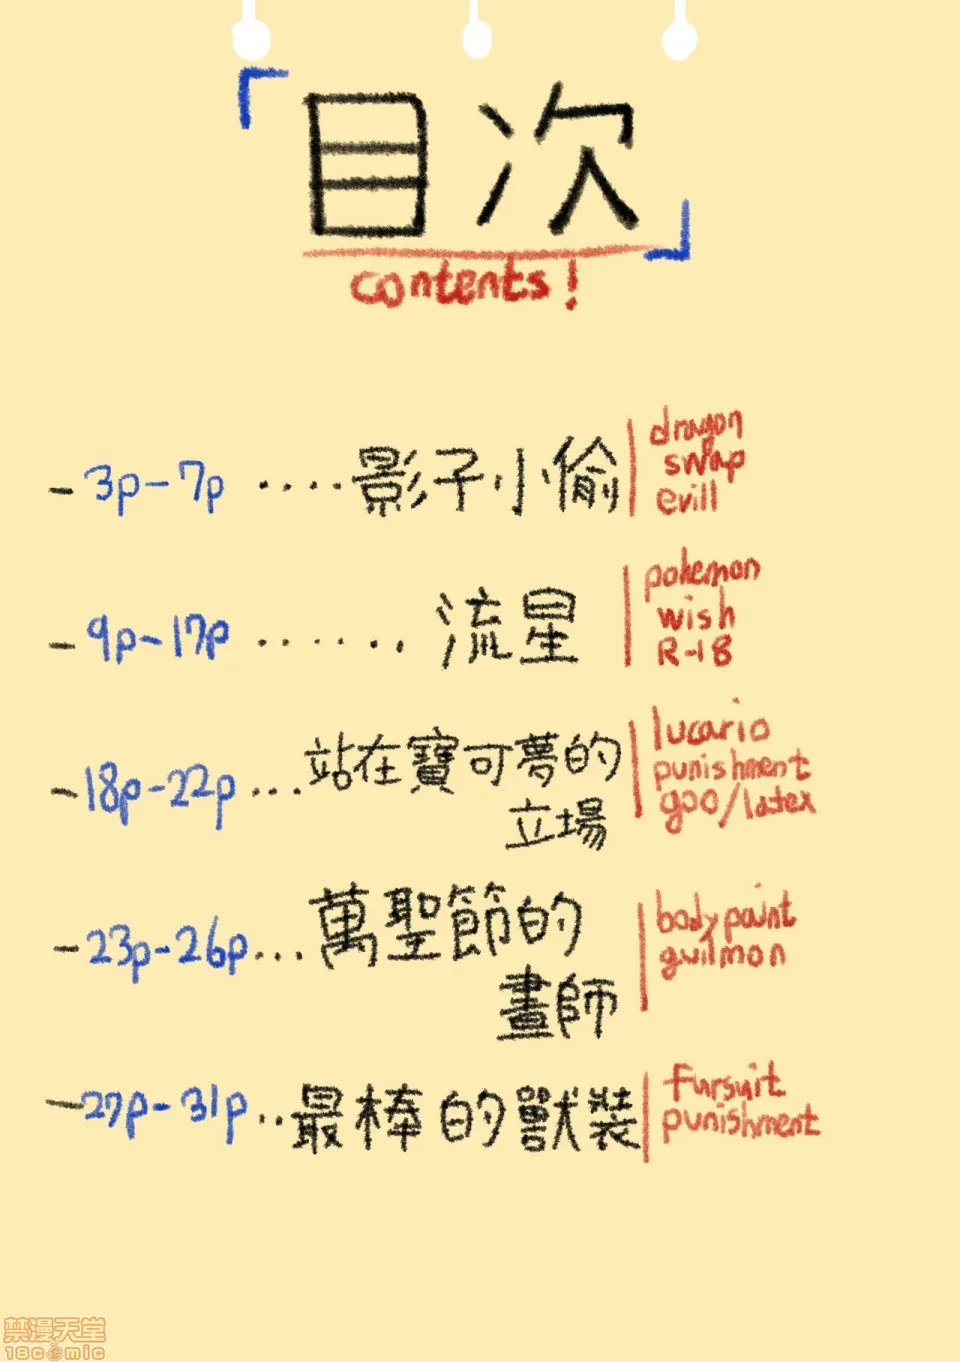 「目次」
contents!
- 3p-7p ....影子小偷
dragon
swap
evill
- 9p-17p ....... 流星
pokemon
wish
R-18
- 18p-22p ...站在寶可夢的
立場
lucario
punishment
goo/latex
- 23p-26p ...萬聖節的
畫師
body paint
guilmon
- 27p-31p ..最棒的獸裝
fursuit
punishment
禁漫天堂
18comic